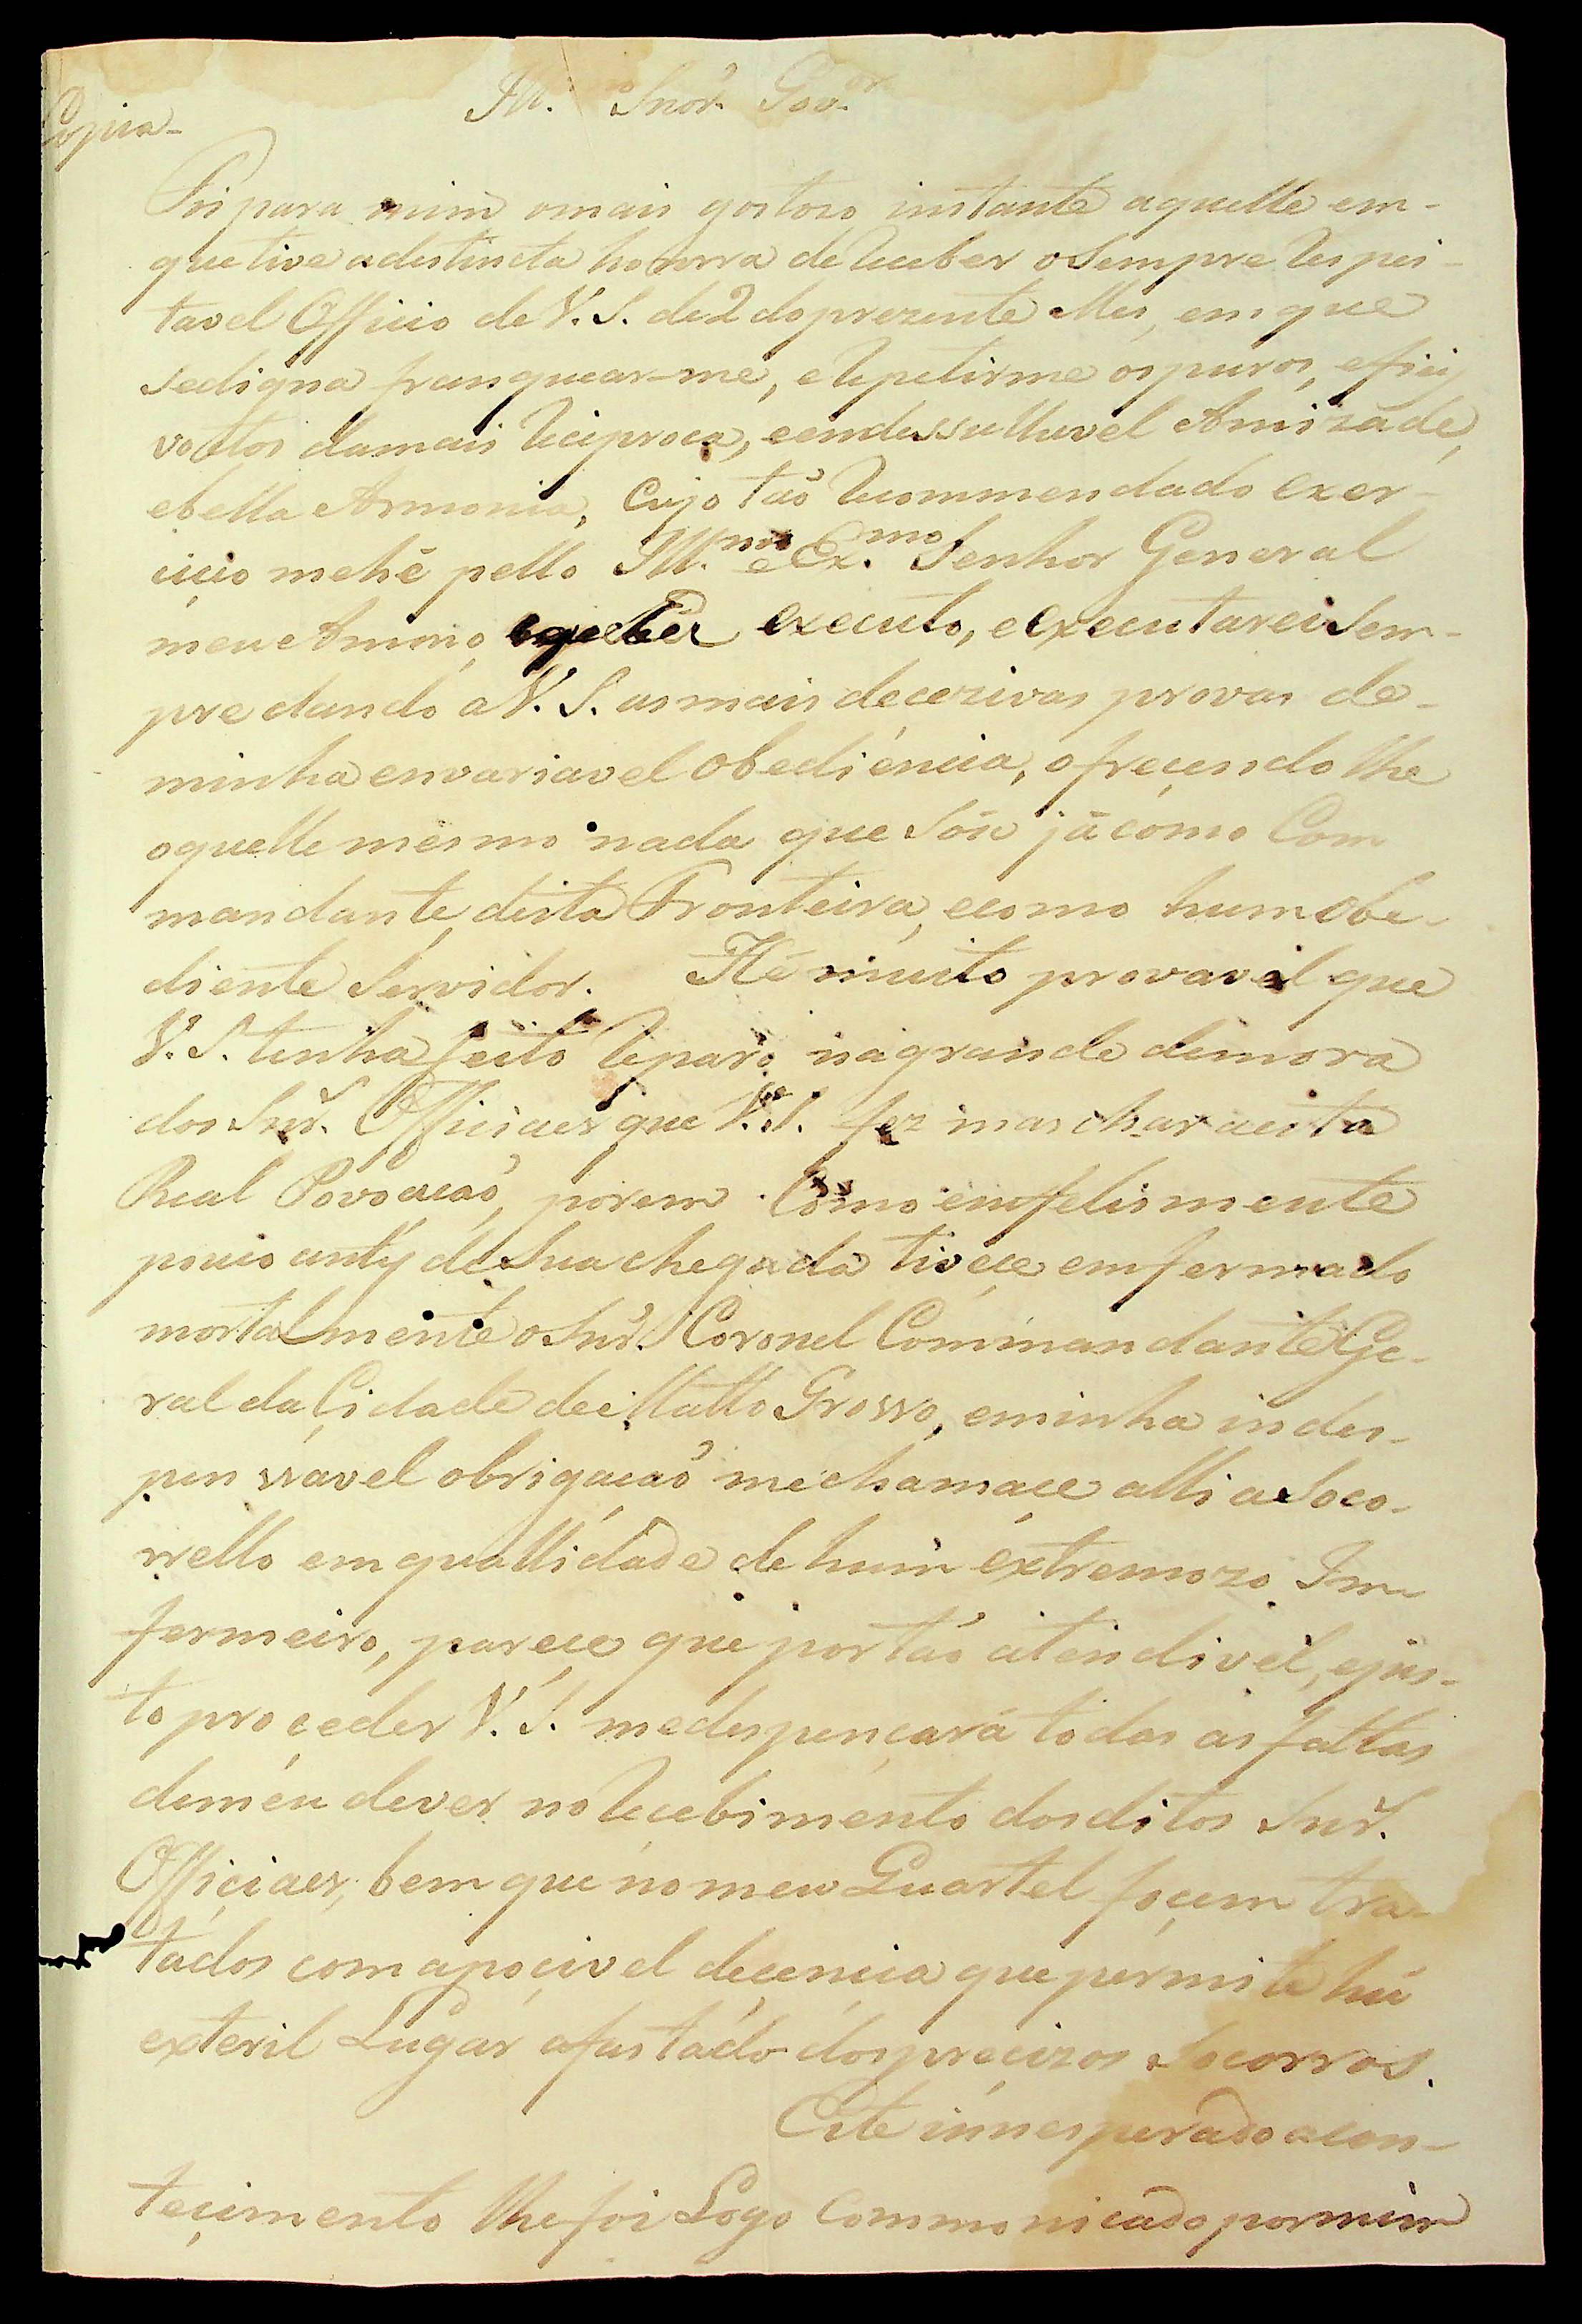 Ill. Snõr. Gov.or
Copia-
Foi para mim o mais gostozo instante aquelle em-
que tive a destincta honrra de Receber o Sempre Respei-
tavel Officio de V. S. de 2 do prezente Mes, em que
se digna franquear-me, e Repetirme os puros, e fieis
vottos da mais Reciproca, e endessulluvel Amizade,
e bella Armonia, Cujo tão Recommendado exer-
cicio me hé pello Ill.mo e Ex.mo Senhor General
meu Ammo, executo, e executarei Sem-
pre dando a V. S. as mais decezivas provas de-
minha envariavel obediência, ofreçendo lhe
aquelle mesmo nada que Sou já como Com
mandante desta Fronteira, e como hum obe-
diente Servidor. Hé muito provavel que
V. S. tenha feito Reparo na grande demora
dos Snr̃. Officiaes que V. S. fez marchar a esta
Real Povoacaõ, porem Como emfelismente
pouco antes de Sua chegada tivece emfermado
mortalmente o Snr̃. Coronel Commandante Ge-
ral da Cidade de Matto Grosso, e minha indes-
pen ssavel obrigacaõ me chamace alli a Soco-
rrello em quallidade de hum extremozo Im
fermeiro, parece que por taõ atendivel, e jus-
to proçeder V. S. me despençará todas as faltas
de meu dever no Recebimento dos ditos Snr̃.
Offiçiaes, bem que no meu Quartel foçem tra-
tados com a poçivel deçencia que permite hũ
exteril Lugar afastado dos preçizos Socorros.
Este innesperado acon-
teçimento lhe foi Logo Commonicado por mim